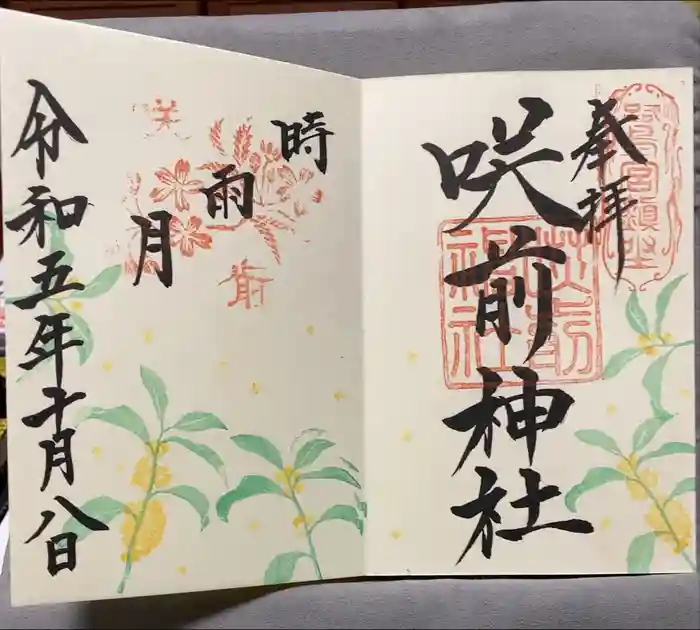 奉拝
咲前神社
咲前神社
時雨月
咲
前
令和五年十月八日